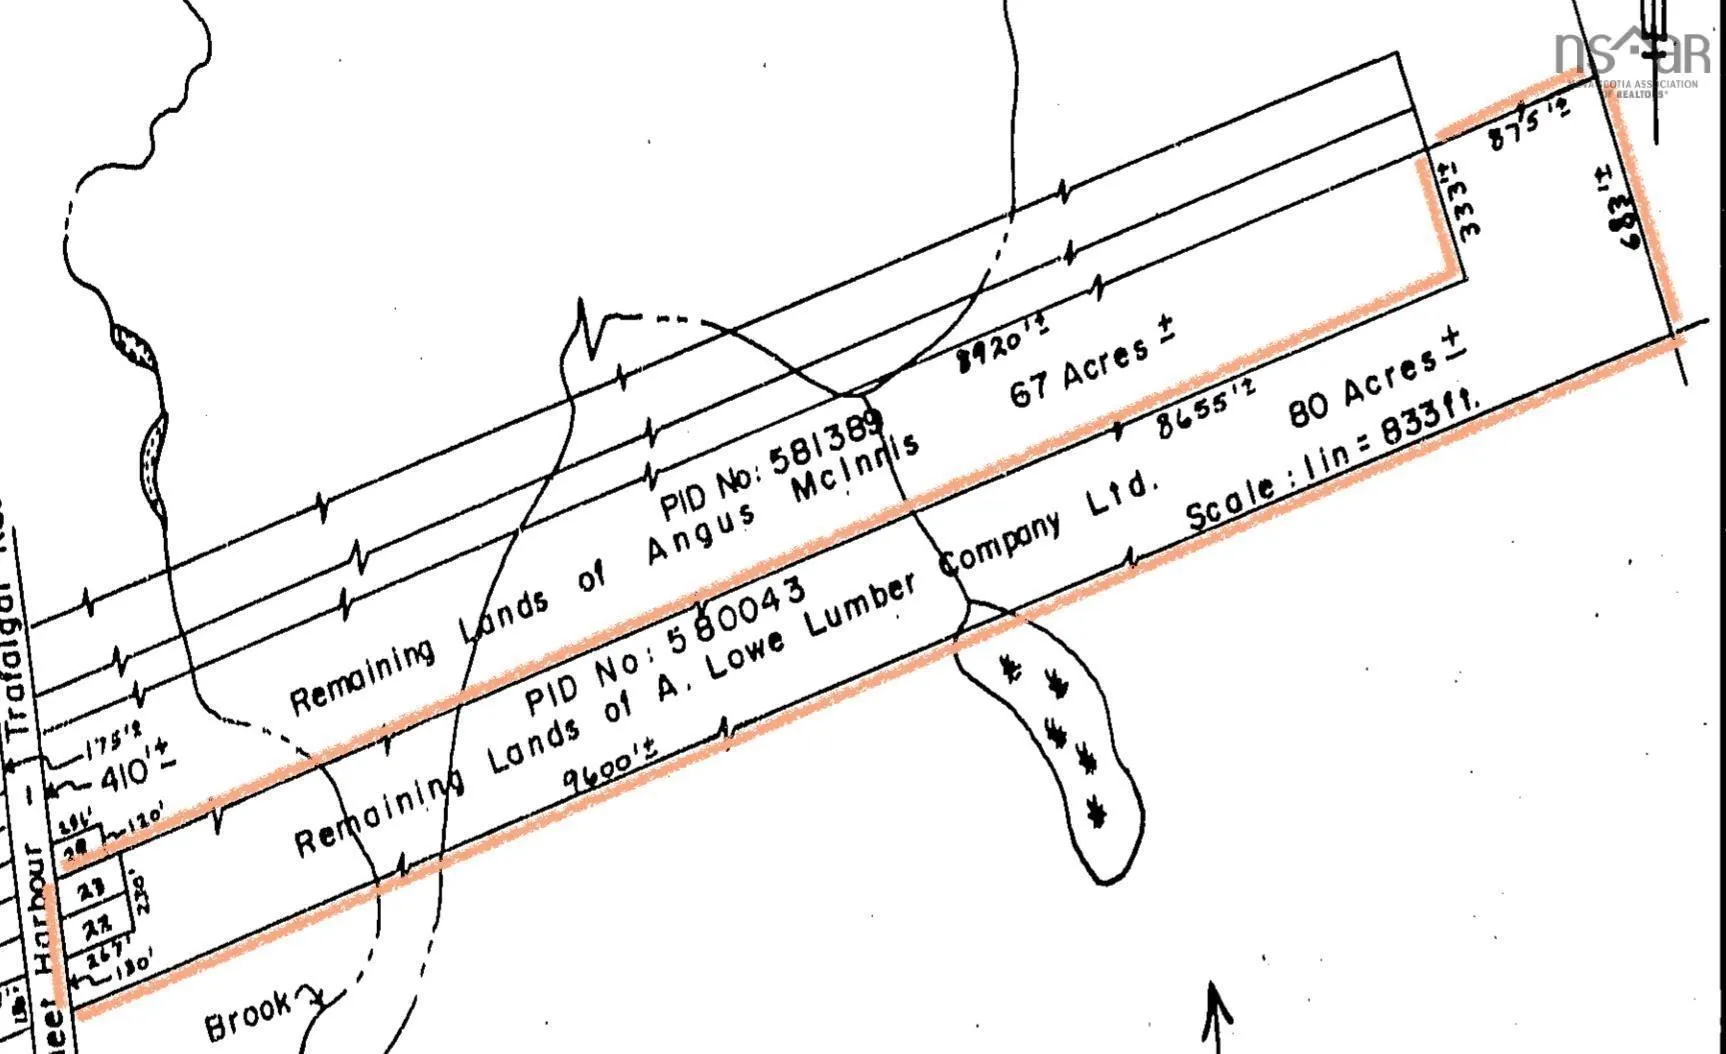 nsar
NOVA SCOTIA ASSOCIATION
OF REALTORS®
875'±
333'±
683'±
8920'±
67 Acres ±
8655'±
80 Acres ±
Scale : 1 in = 833 ft.
PID No: 581389
Remaining Lands of Angus McInnis
PID No: 580043
Remaining Lands of A. Lowe Lumber Company Ltd.
9600'±
175'±
410'±
120'
23
22
230'
267'
130'
Brook
Harbour - Trafalgar